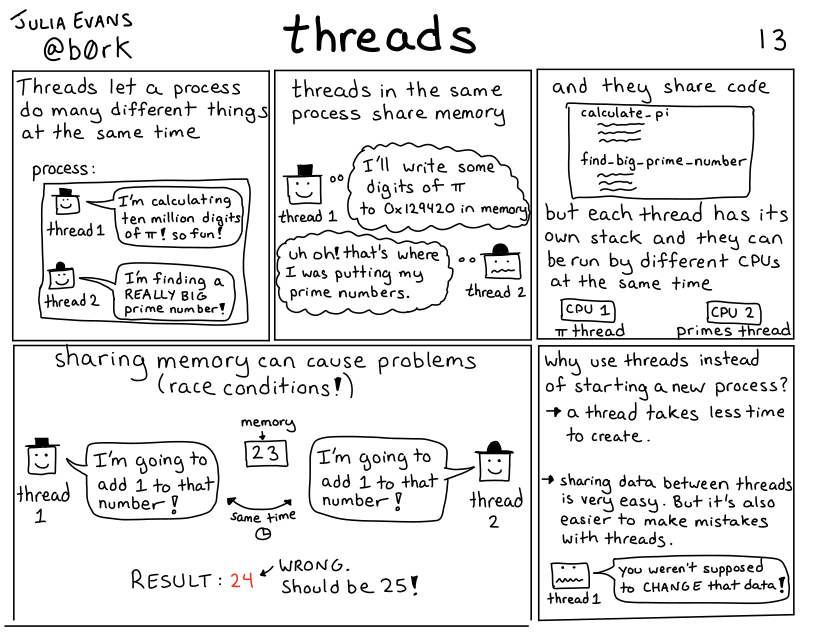 JULIA EVANS
@b0rk
threads
13
Threads let a process
do many different things
at the same time
process:
I'm calculating
ten million digits
of π! so fun!
thread 1
I'm finding a
REALLY BIG
prime number!
thread 2
threads in the same
process share memory
I'll write some
digits of π
to 0x129420 in memory
thread 1
uh oh! that's where
I was putting my
prime numbers.
thread 2
and they share code
calculate_pi
find_big_prime_number
but each thread has its
own stack and they can
be run by different CPUs
at the same time
CPU 1
π thread
CPU 2
primes thread
sharing memory can cause problems
(race conditions!)
memory
23
I'm going to
add 1 to that
number!
thread
1
same time
I'm going to
add 1 to that
number!
thread
2
RESULT: 24
WRONG.
Should be 25!
why use threads instead
of starting a new process?
→ a thread takes less time
to create.
→ sharing data between threads
is very easy. But it's also
easier to make mistakes
with threads.
you weren't supposed
to CHANGE that data!
thread 1